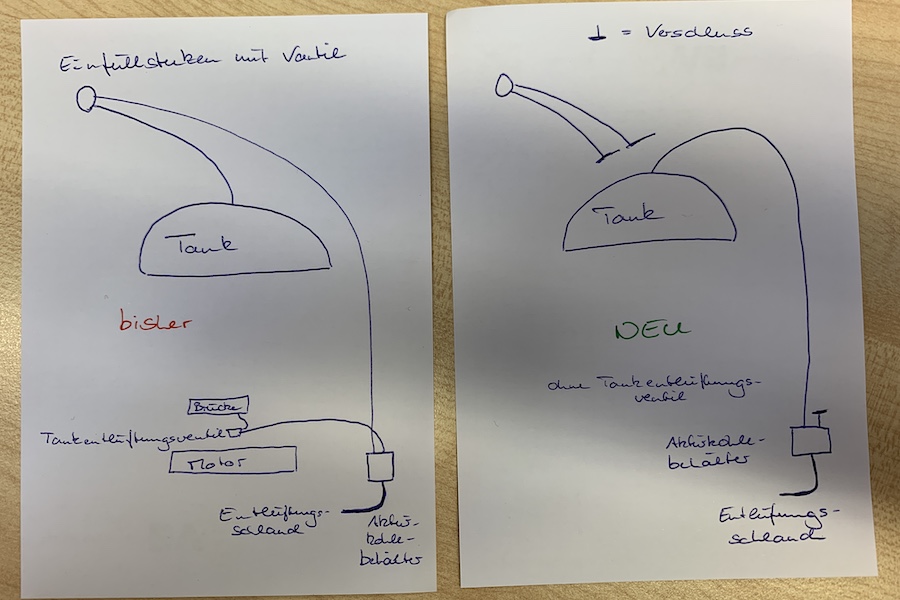 Einfüllstutzen mit Ventil
Tank
bisher
Brücke
Tankentlüftungsventil
Motor
Entlüftungs-
schlauch
Aktiv-
kohle-
behälter
⊥ = Verschluss
Tank
NEU
ohne Tankentlüftungs-
ventil
Aktivkohle-
behälter
Entlüftungs-
schlauch